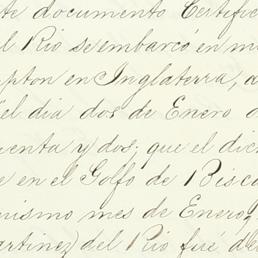 te documento Certific
l Rio se embarcó en m
pton en Inglaterra, a
el dia dos de Enero
uenta y dos; que el dic
e en el Golfo de Bisc
mismo mes de Enero,
artinez) del Rio fué de